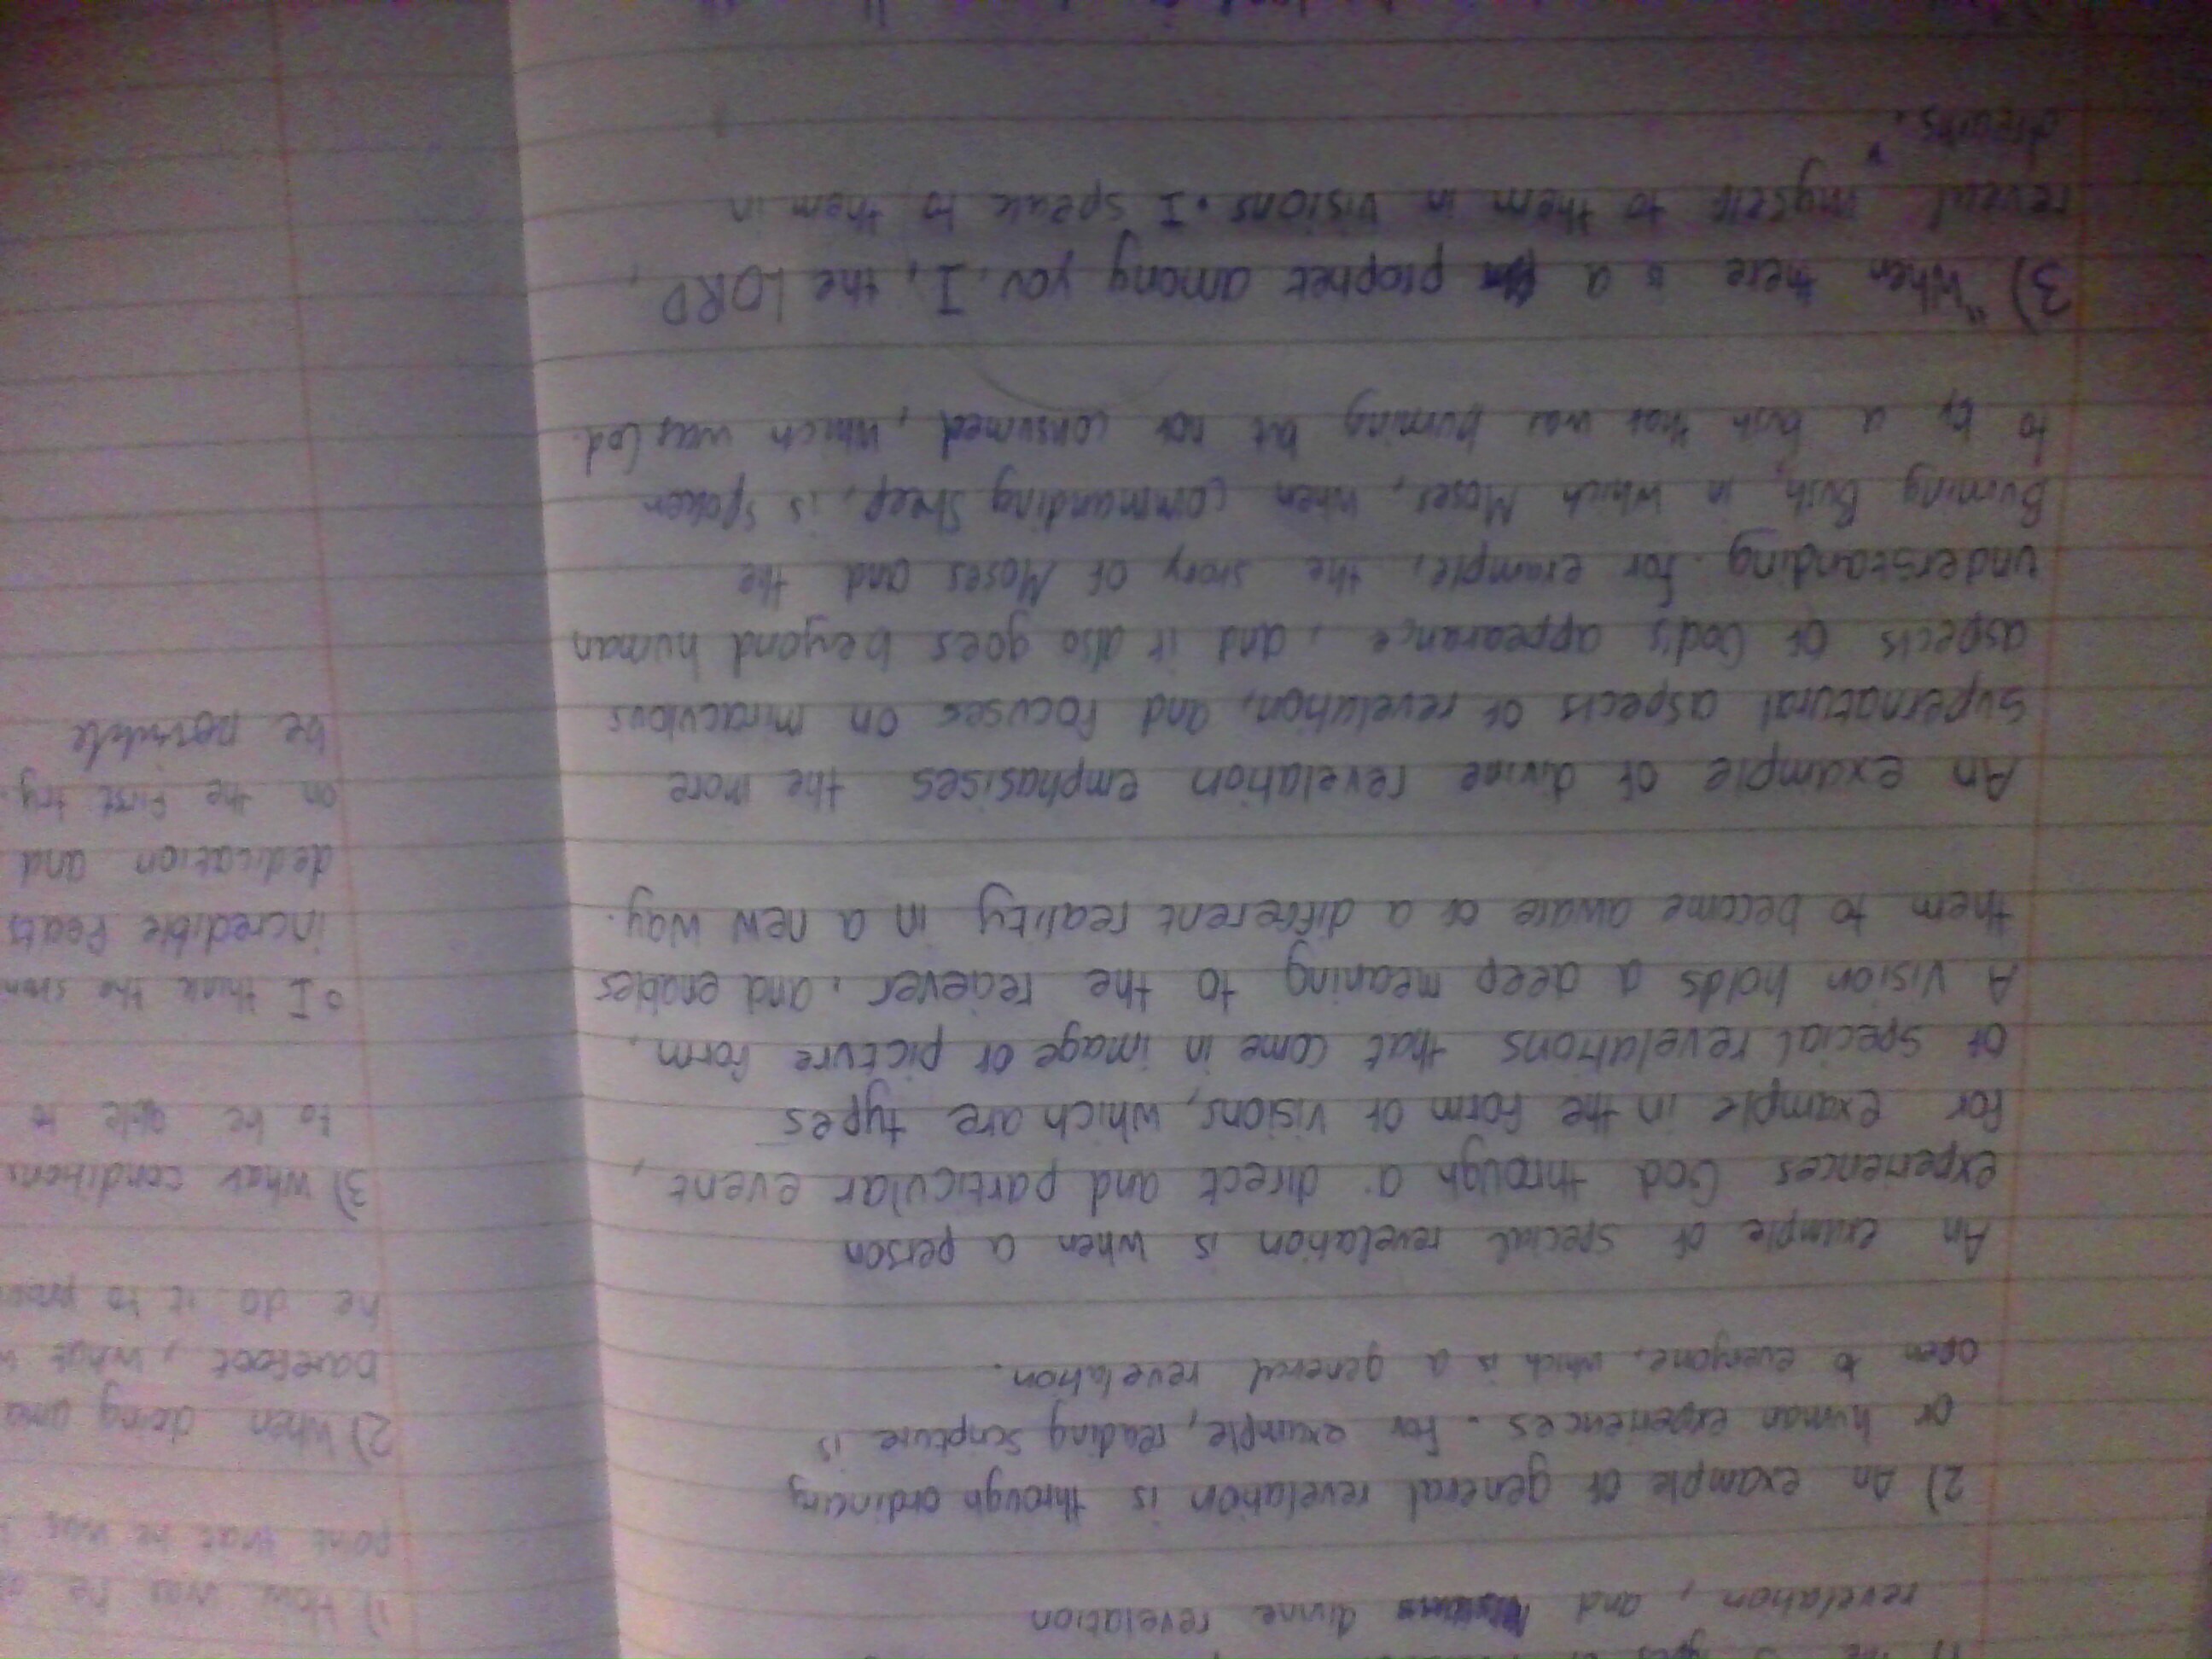 revelation, and divine revelation
2) An example of general revelation is through ordinary
or human experiences. For example, reading scripture is
open to everyone, which is a general revelation.
An example of special revelation is when a person
experiences God through a direct and particular event,
for example in the form of visions, which are types
of special revelations that come in image or picture form.
A vision holds a deep meaning to the reciever, and enables
them to become aware of a different reality in a new way.
An example of divine revelation emphasises the more
supernatural aspects of revelation, and focuses on miraculous
aspects of God's appearance, and it also goes beyond human
understanding. For example, the story of Moses and the
Burning Bush, in which Moses, when commanding sheep, is spoken
to by a bush that was burning but not consumed, which was God.
3) "When there is a prophet among you, I, the LORD,
reveal myself to them in visions. I speak to them in
dreams."
1) How was he
point that he was
2) When doing
barefoot, what
he do it to
3) What conditions
to be able to
° I think the
incredible feats
dedication and
on the first try.
be